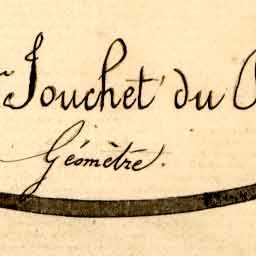 Jouchet du
Géomètre.